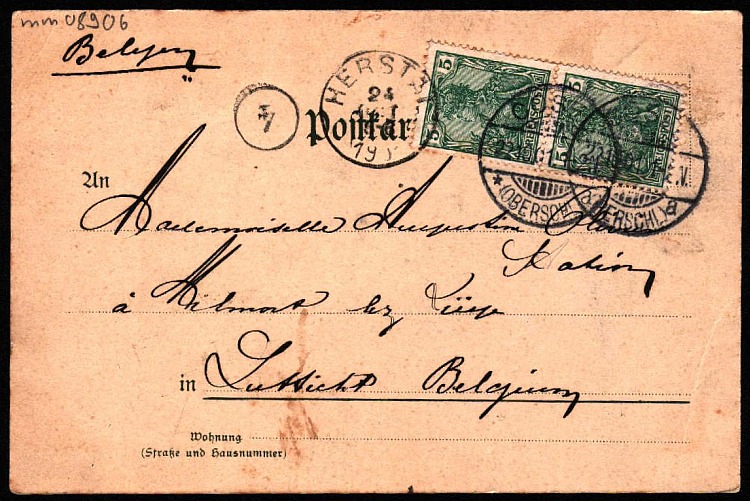 mm08906
Belgien
HERSTAL
24
5
5
7
Postkar
(OBERSCHL.)
a
An
Mademoiselle Augustin
Station
à Milmort bez Liège
in Lüttich Belgium
Wohnung
(Straße und Hausnummer)